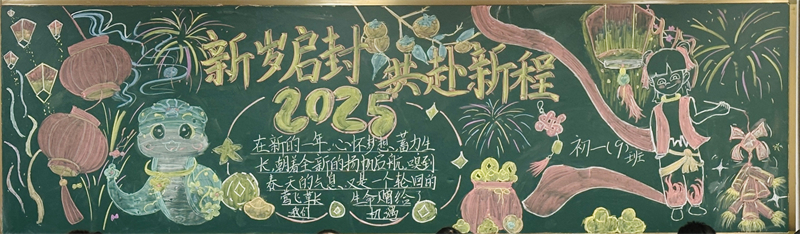 新岁启封 共赴新程
2025
在新的一年,心怀梦想,蓄力生
长,朝着全新的扬帆启航,嗅到
春天的气息,又是一个轮回的
莺飞草长 生命赠给
我们 机遇
初一(9)
班